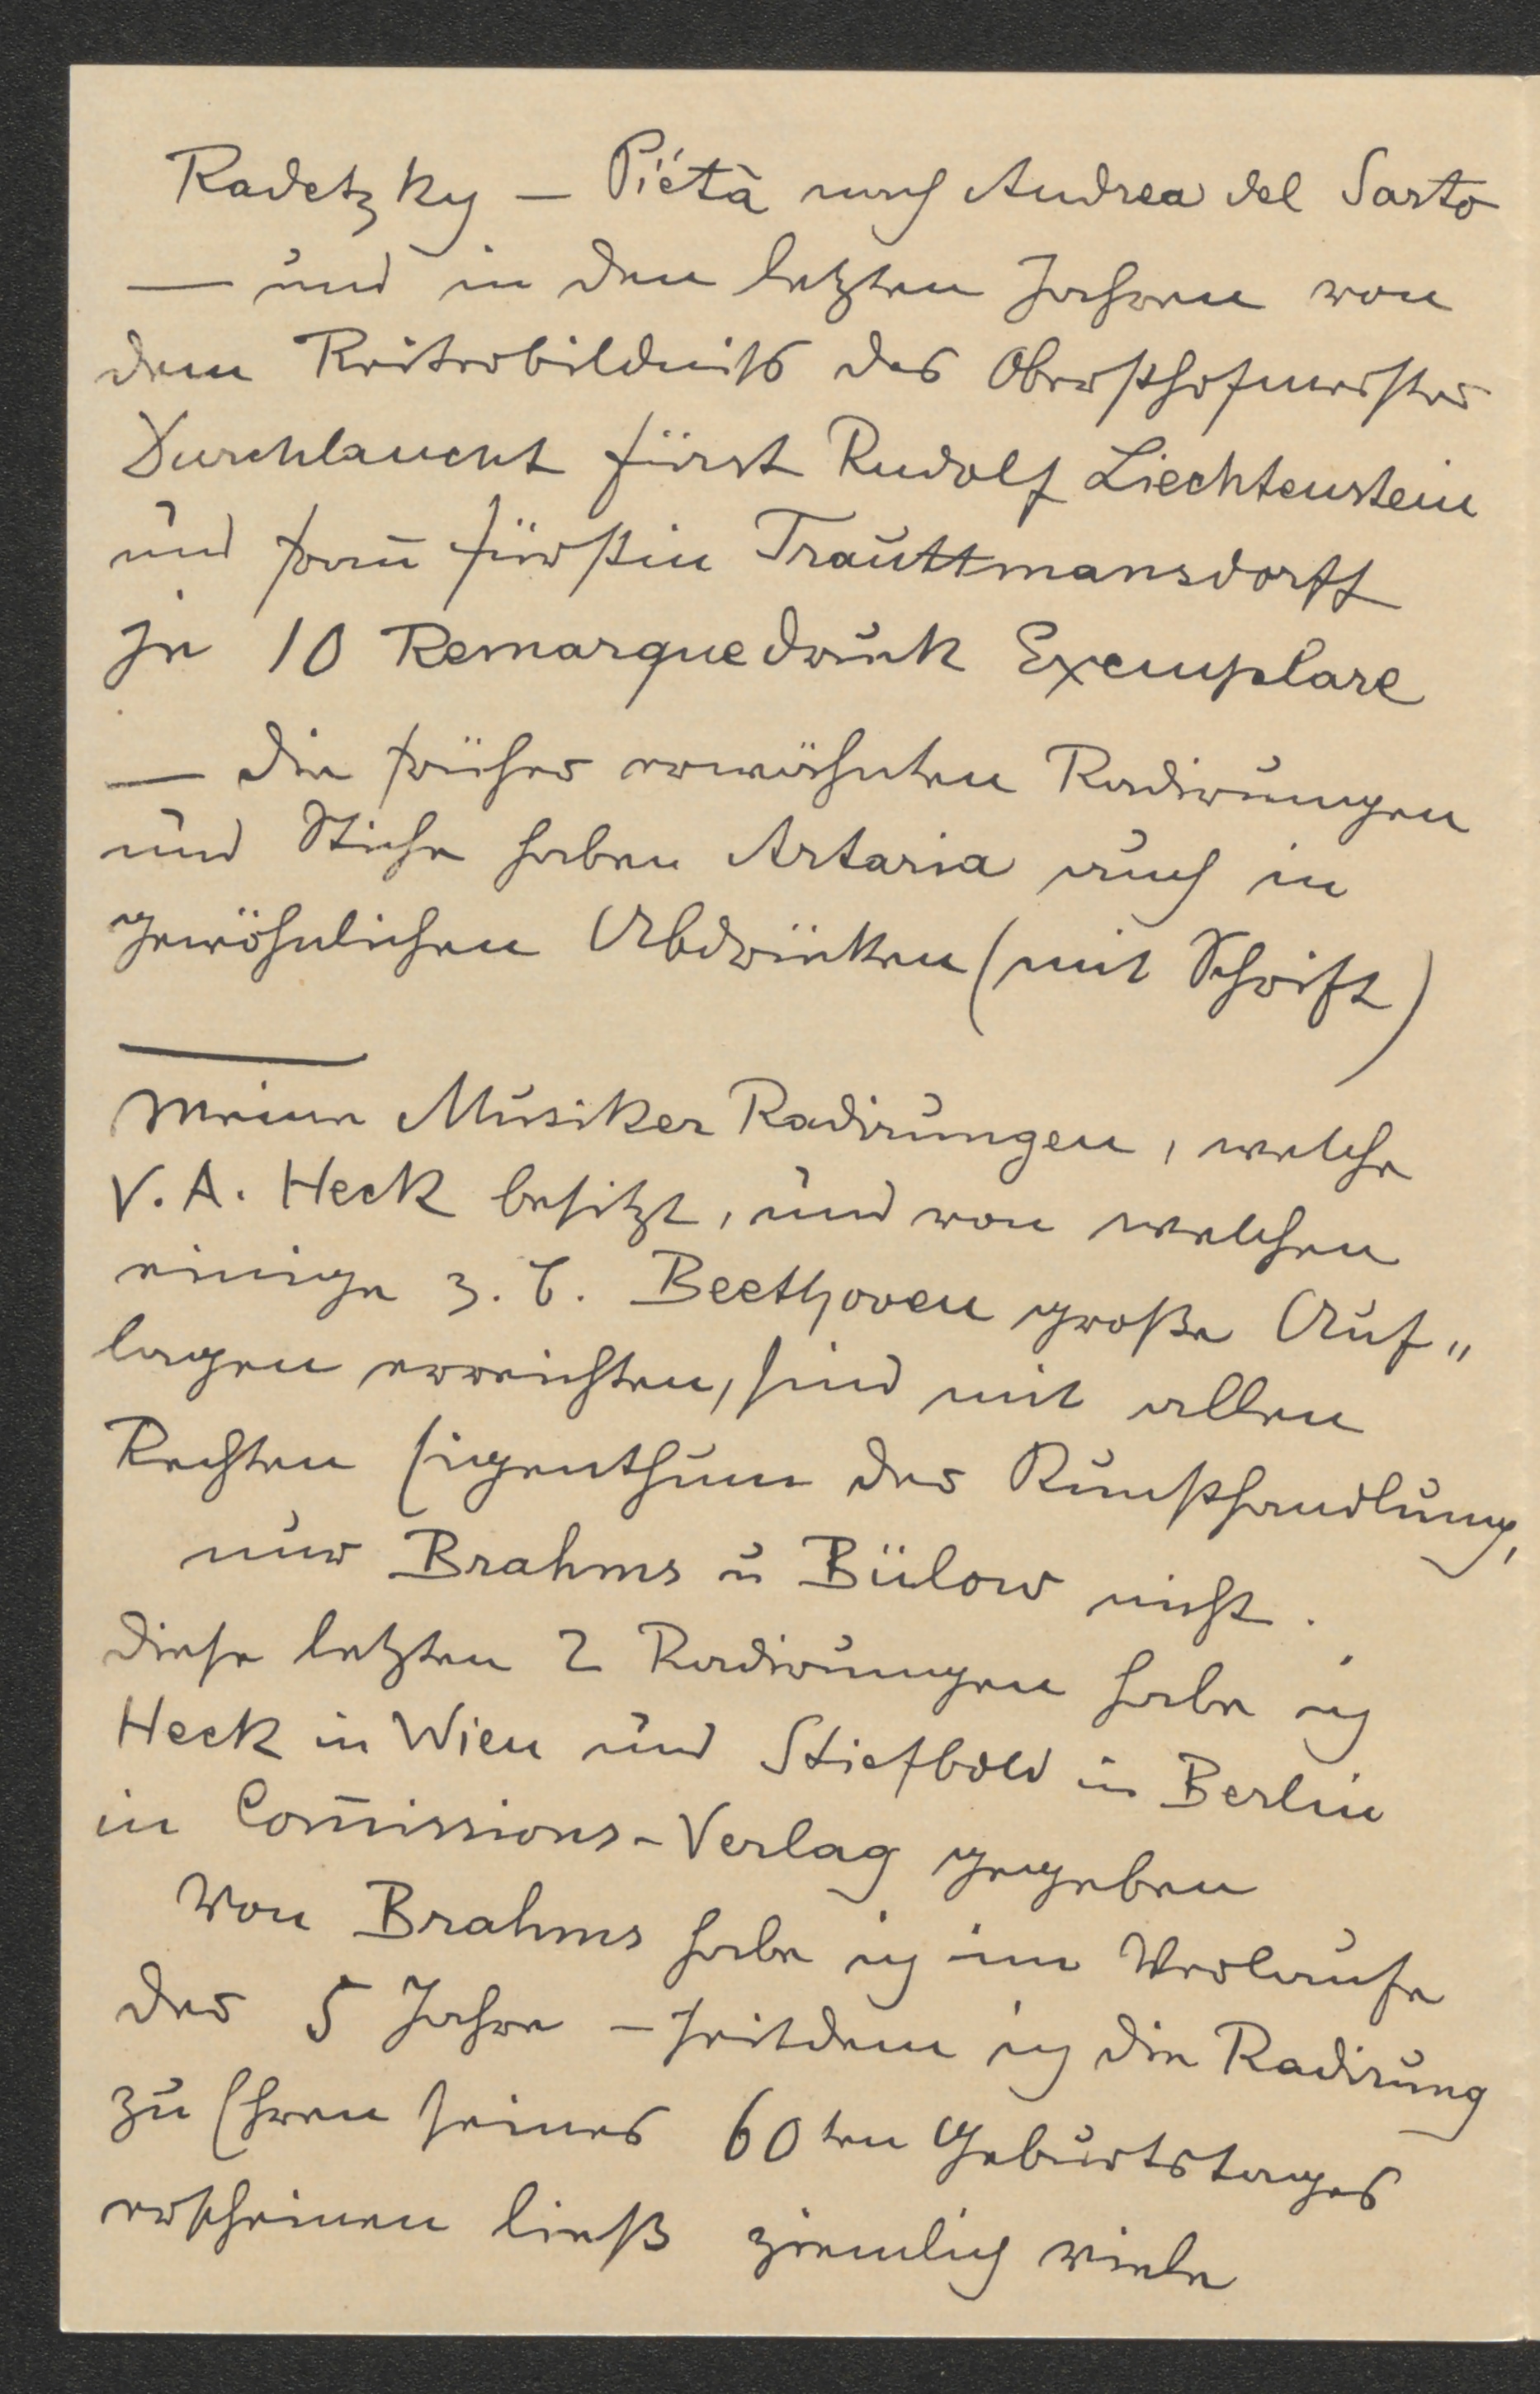 Radetzky — Piétà nach Andrea del Sarto
— und in den letzten Jahren von
dem Reiterbildniß des Obersthofmeister
Durchlaucht Fürst Rudolf Liechtenstein
und Frau Fürstin Trauttmansdorff
je 10 Remarquedruck Exemplare
— die früher erwähnten Radirungen
und Stiche haben Artaria auch in
gewöhnlichen Abdrücken (mit Schrift)
Meine Musiker Radirungen, welche
V. A. Heck besitzt, und von welchen
einige z. B. Beethoven große Auf„
lagen erreichten, sind mit allen
Rechten Eigenthum der Kunsthandlung,
nur Brahms u Bülow nicht.
Diese letzten 2 Radirungen habe ich
Heck in Wien und Stiefbold in Berlin
in Com̅issions-Verlag gegeben
Von Brahms habe ich im Verlaufe
der 5 Jahre — seitdem ich die Radirung
zu Ehren seines 60ten Geburtstages
erscheinen ließ ziemlich viele